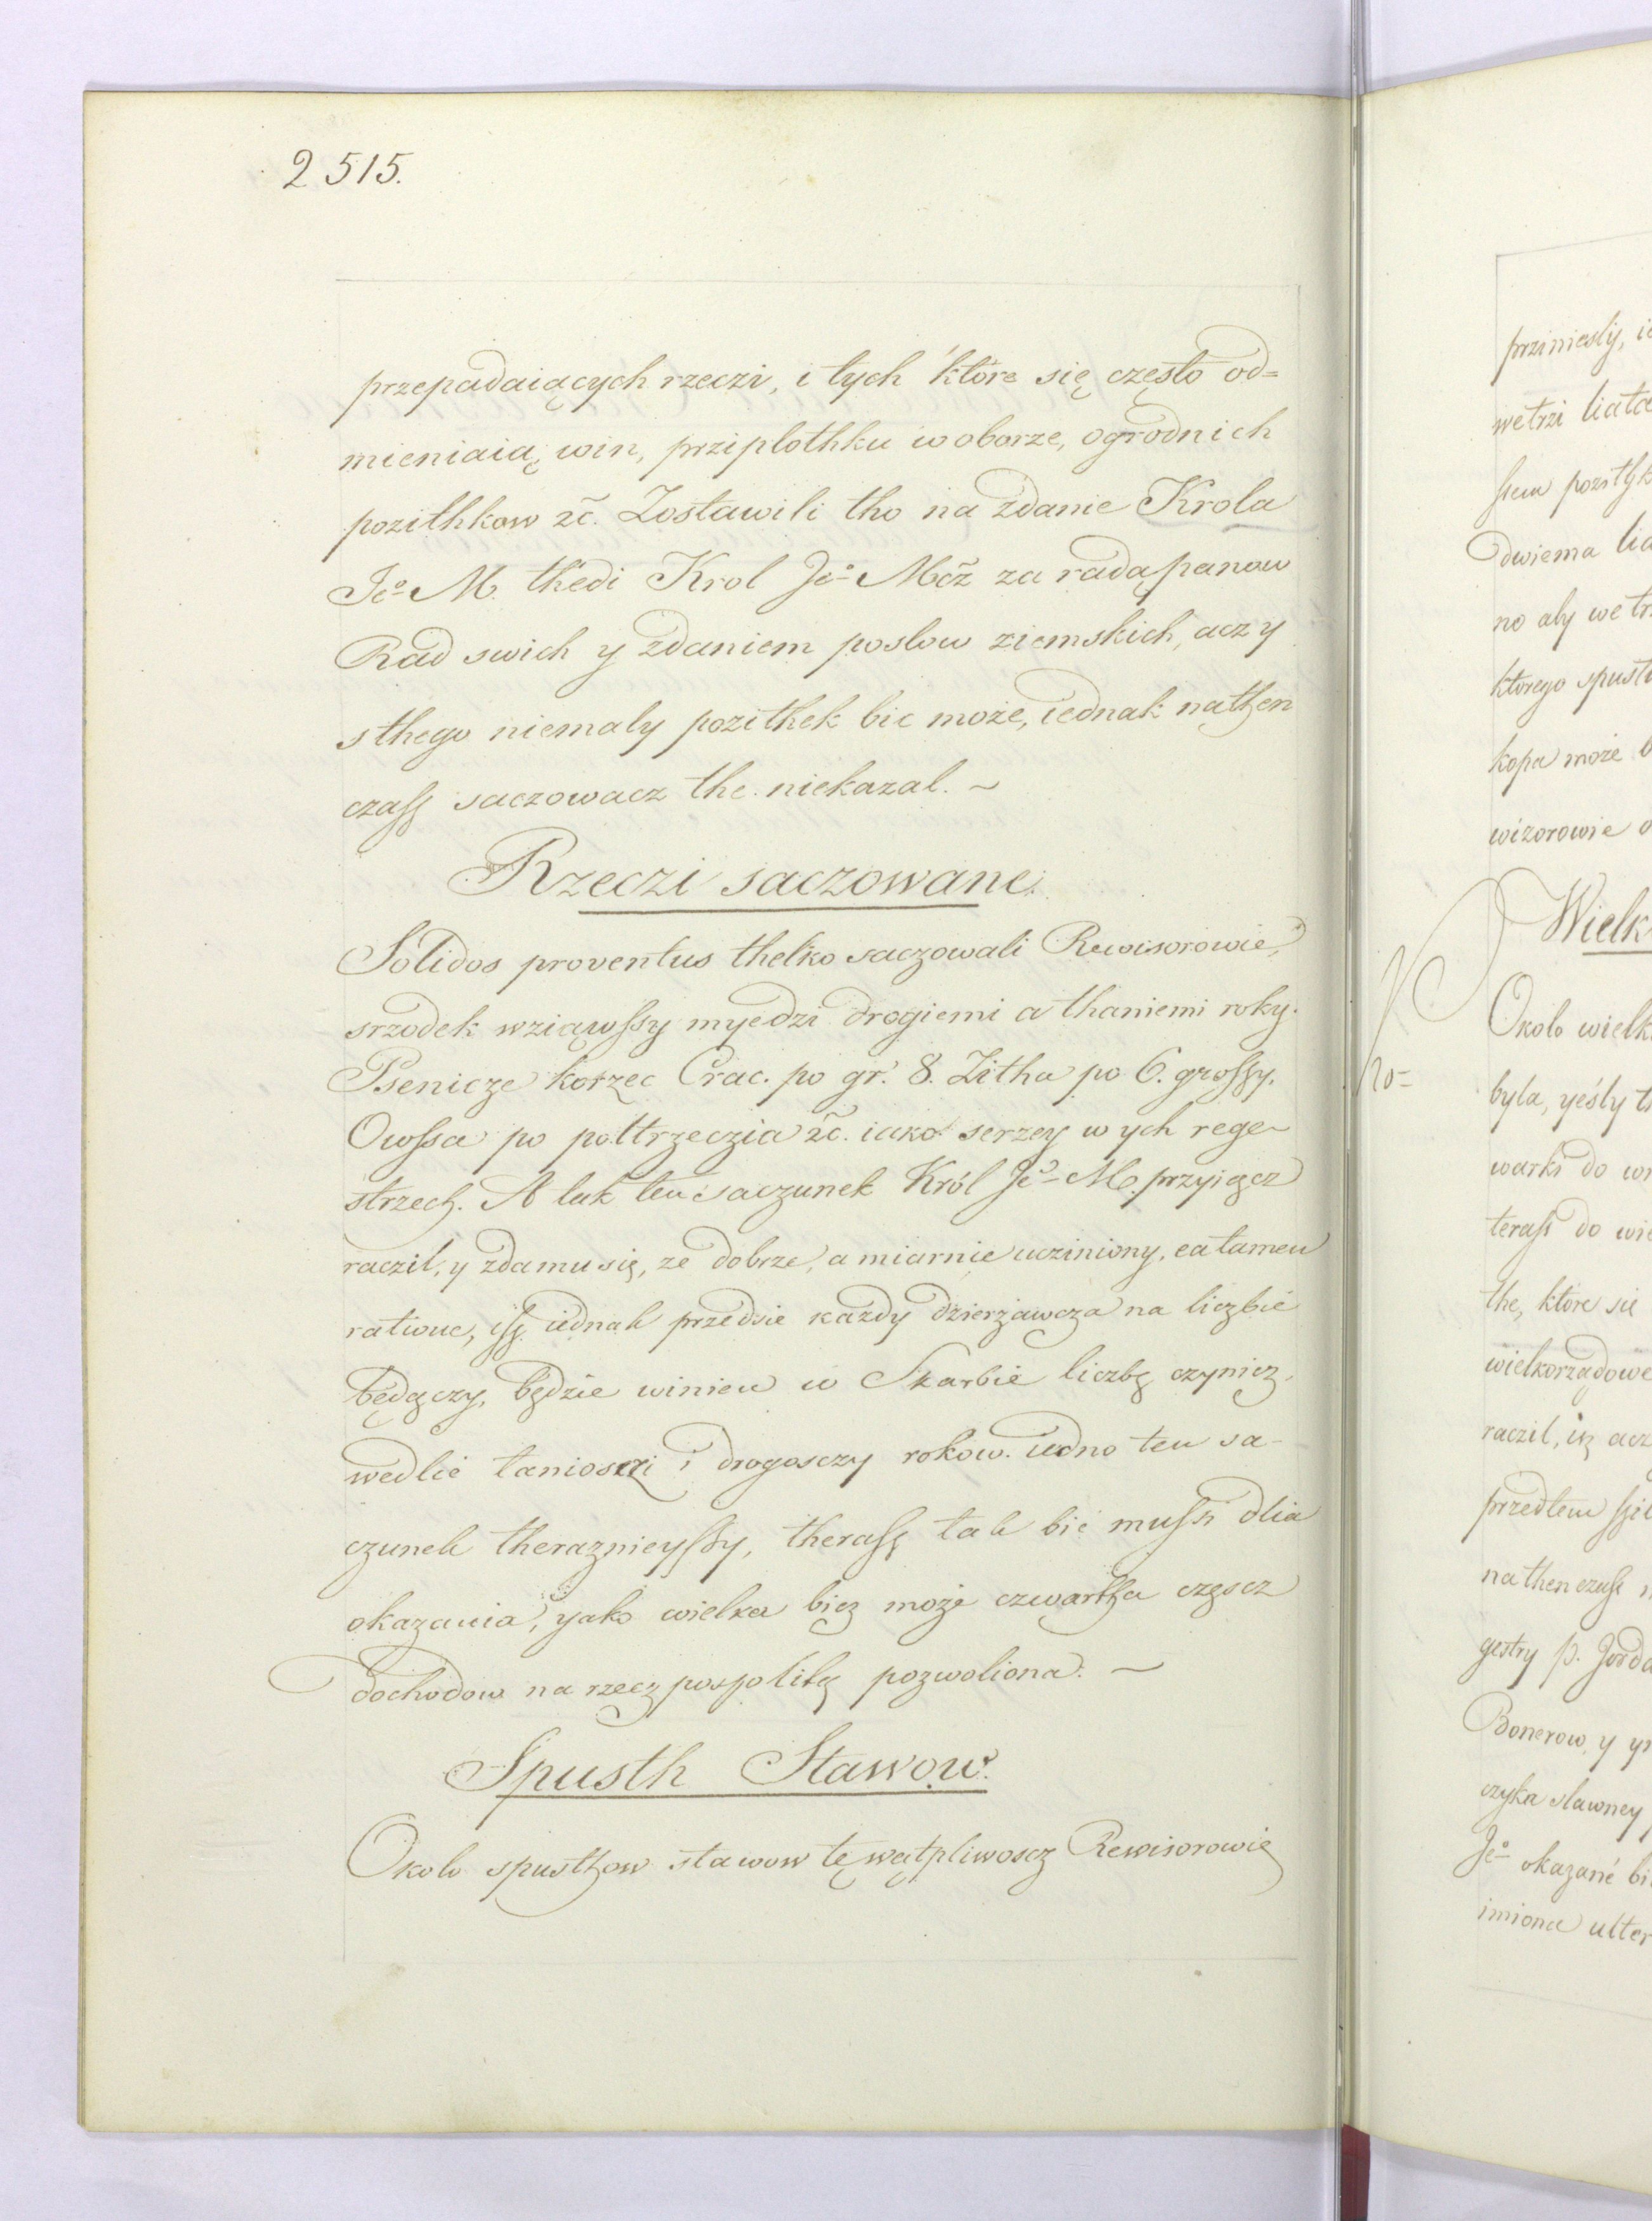 2515.
przepadaiących rzeczi, i tych które się często od=
mieniaią, win, prziplothku w oborze, ogrodnich
pozithkow &c. Zostawili tho na zdanie Krola
Je° M. thedi Krol Je° Mcz za radą panow
Rad swich y zdaniem poslow ziemskich, aczy
sthego niemaly pozithek bic może, iednak nathen
czasz saczowacz the niekazal. ~
Rzeczi saczowane.
Solidos proventus thelko saczowali Rewisorowie,
srzodek wziąwssy myedzi drogiemi a thaniemi roky.
Psenicze korzec Crac. po gr. 8. Zitha po 6. groszy.
Owssa po pottrzeczia &c. iako serzey w ych rege~
strzech. A tak ten saczunek Król Je° M. przyiącz
raczil, y zda mu się, ze dobrze, a miarnie ucziniony, ea tamen
ratione, isz iednak przedsie każdy dzierżawcza na liczbie
będączy, będzie winien w Skarbie liczbę czynicz,
wedlie taniosczi i drogosczy rokow. iedno ten sa-
czunek theraznieyssy, therasz tak bić mussi dlia
okazania, yako wielka bicz może czwartha częscz
dochodow na rzecz pospolitą pozwoliona. ~
Spusth Stawow.
Okolo spusthow stawow tę wątpliwoscz Rewisorowie
prziniesly,
wetrzi
dwiema
no aby we
ktorego
kopa może
wizorowie
Wielk
Okolo wielk
10=
byla, yesly
warki do
terass do
the, ktore się
wielkorządowe
raczil, iż
przedtem
nathen czass
gestry p. Jorda
Bonerow, y
czyka slawney
Je° okazané
imiona